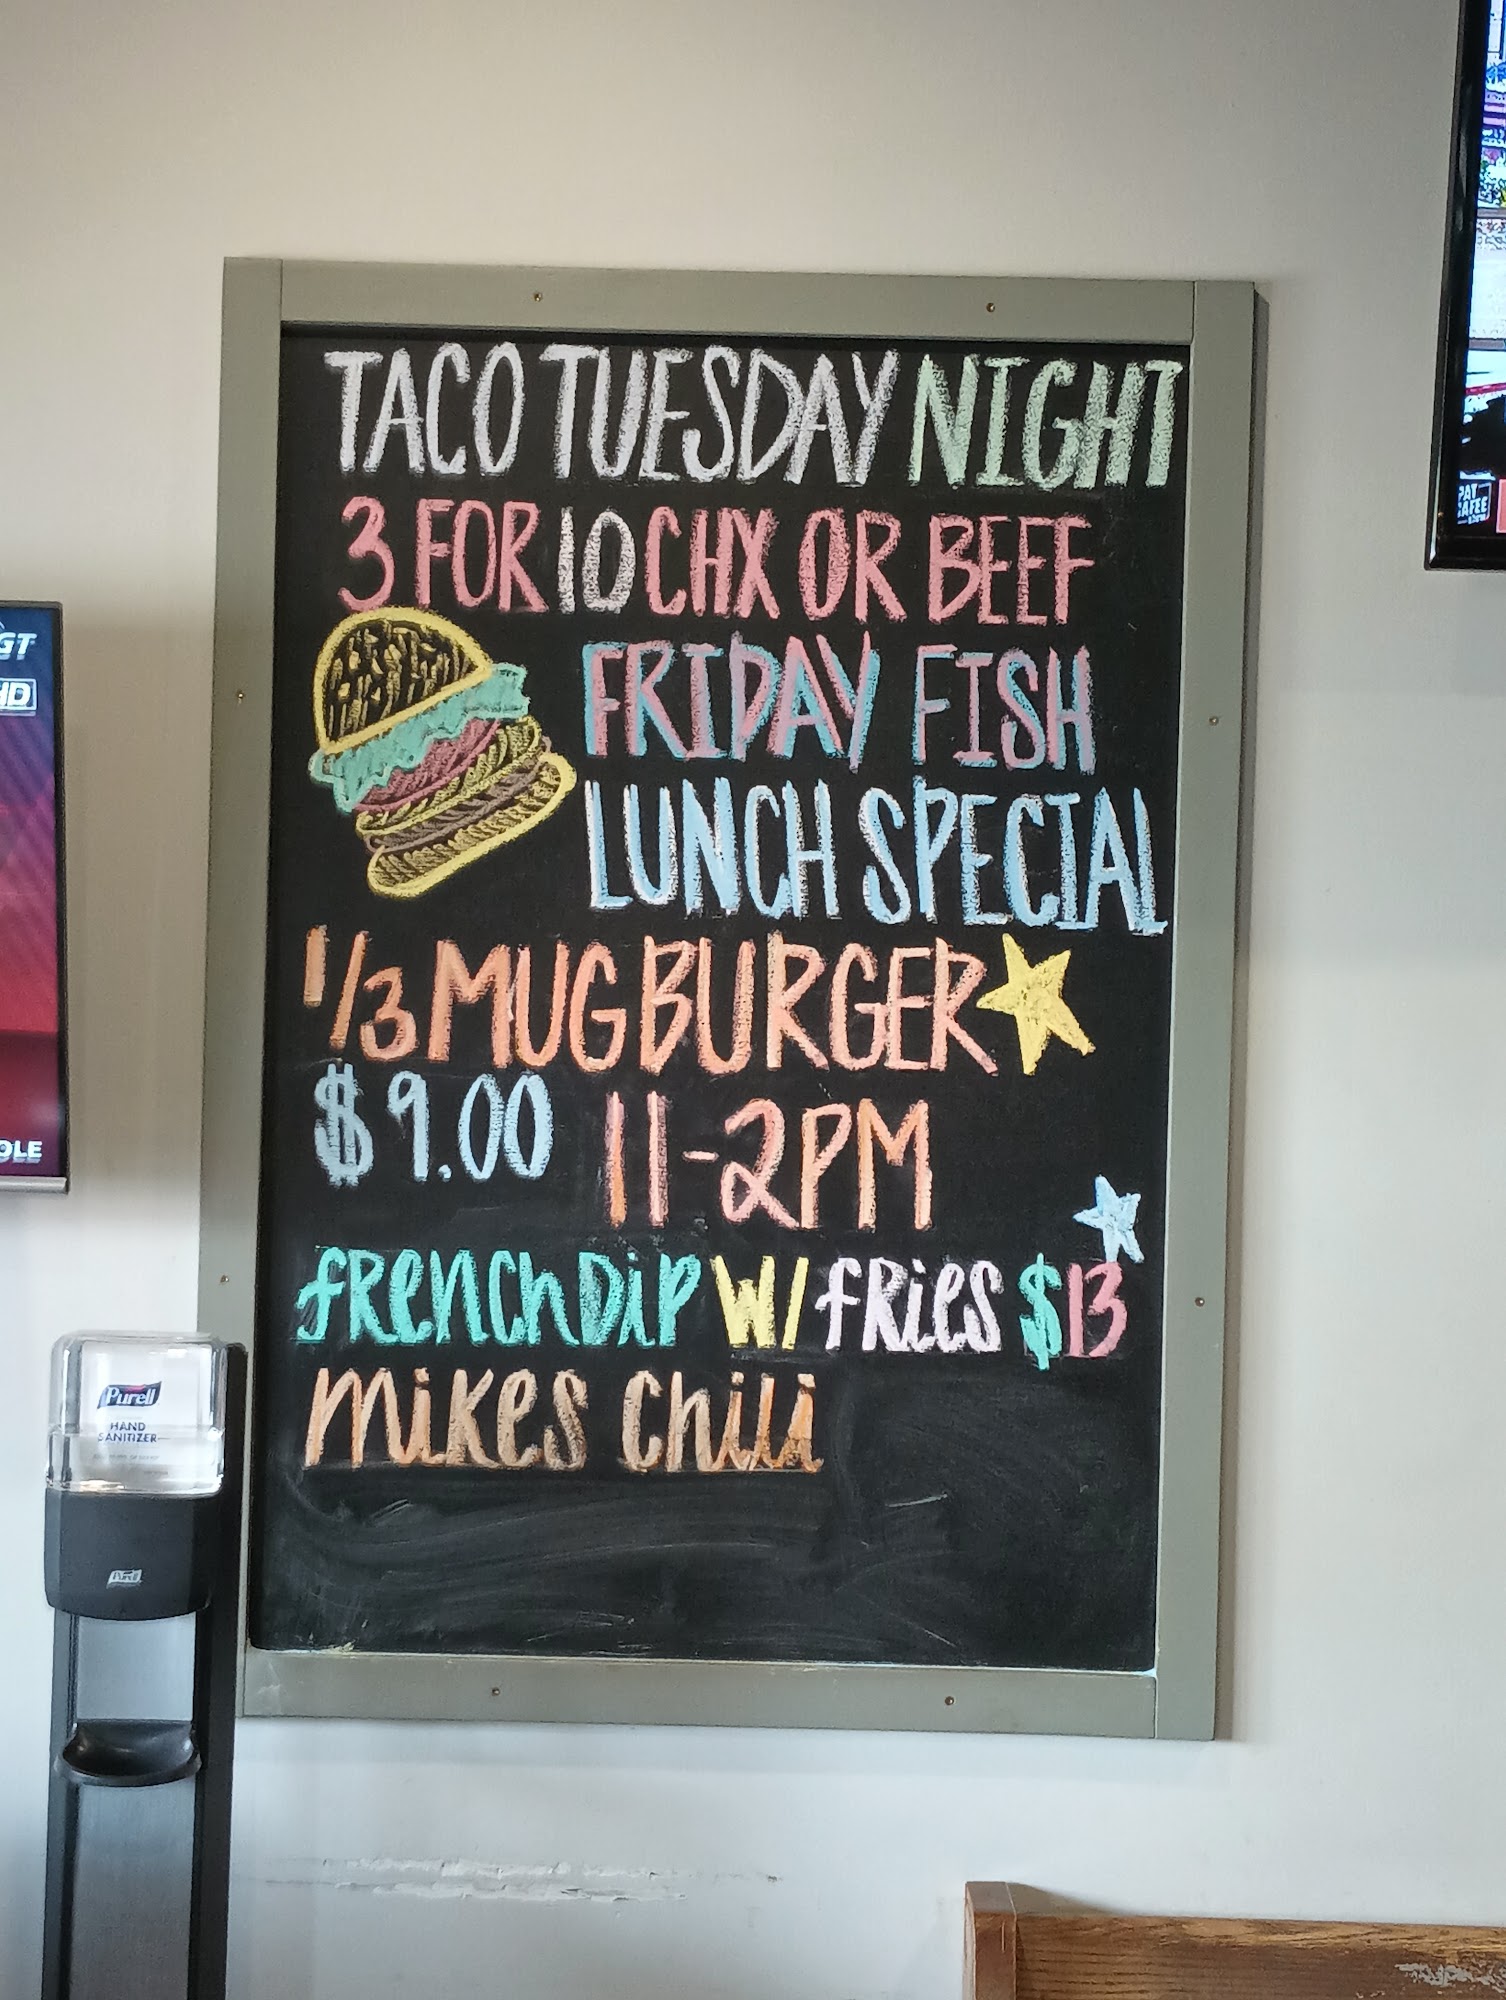 TACO TUESDAY NIGHT
3 FOR 10 CHX OR BEEF
FRIDAY FISH
LUNCH SPECIAL
1/3 MUG BURGER
$9.00 11-2PM
FRENCH DIP W/ FRIES $13
MIKES CHILI
GT
HD
OLE
Purell
HAND
SANITIZER
Purell
PAT